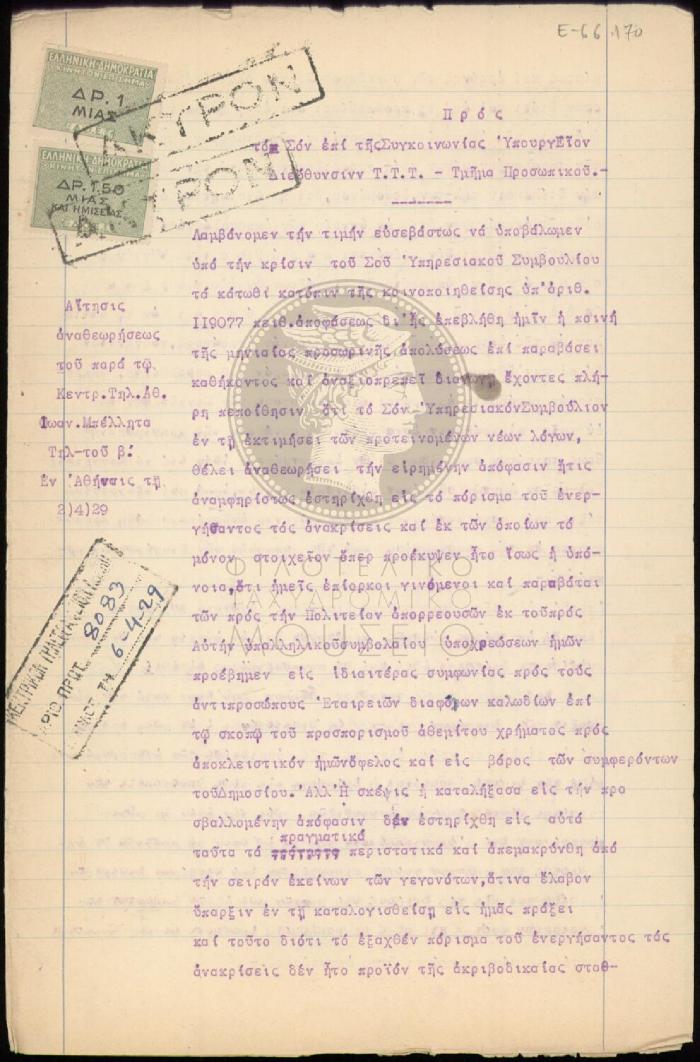 E-66.170
ΕΛΛΗΝΙΚΗ ΔΗΜΟΚΡΑΤΙΑ
ΚΙΝΗΤΟΝ ΕΠΙΣΗΜΑ
ΔΡ. 1
ΜΙΑΣ
ΑΚΥΡΟΝ
ΕΛΛΗΝΙΚΗ ΔΗΜΟΚΡΑΤΙΑ
ΔΡ. 1.50
ΜΙΑΣ
ΚΑΙ ΗΜΙΣΕΙΑΣ
ΡΟΝ
Πρός
τό Σόν ἐπί τῆςΣυγκοινωνίας ῾ΥπουργΕῖον
Διεύθυνσινν Τ.Τ.Τ. - Τμῆμα Προσωπικοῦ.-
Λαμβάνομεν τήν τιμήν εὐσεβάστως νά ὑποβάλωμεν
ὑπό τήν κρίσιν τοῦ Σοῦ ῾Υπηρεσιακοῦ Συμβουλίου
τά κάτωθι κατόπιν τῆς κοινοποιηθείσης ὑπ᾿ἀριθ.
ΙΙ9077 πειθ.ἀποφάσεως δι᾿ἧς ἐπεβλήθη ἡμῖν ἡ ποινή
τῆς μηνιαίος προσωρινῆς ἀπολύσεως ἐπί παραβάσει
καθήκοντος καί ἀναξιοπρεπεῖ διαγωγῇ ἔχοντες πλή-
ρη πεποίθησιν ὅτι τό Σόν ῾ΥπηρεσιακόνΣυμβούλιον
ἐν τῇ ἐκτιμήσει τῶν προτεινομένων νέων λόγων,
θέλει ἀναθεωρήσει τήν εἰρημένην ἀπόφασιν ἥτις
ἀναμφηρίστως ἐστηρίχθη εἰς τό πόρισμα τοῦ ἐνερ-
γήσαντος τάς ἀνακρίσεις καί ἐκ τῶν ὁποίων τό
μόνον στοιχεῖον ὅπερ προέκυψεν ἦτο ἴσως ἡ ὑπό-
νοια,ὅτι ἡμεῖς ἐπίορκοι γινόμενοι καί παραβάται
τῶν πρός τήν Πολιτείαν ἀπορρευουσῶν ἐκ τοῦπρός
Αὐτήν ὑπαλληλικοῦσυμβολαίου ὑποχρεώσεων ἡμῶν
προέβημεν εἰς ἰδιαιτέρας συμφωνίας πρός τούς
ἀντιπροσώπους ῾Εταιρειῶν διαφόρων καλωδίων ἐπί
τῷ σκοπῷ τοῦ προσπορισμοῦ ἀθεμίτου χρήματος πρός
ἀποκλειστικόν ἡμῶνὄφελος καί εἰς βάρος τῶν συμφερόντων
τοῦΔημοσίου.᾿Αλλ᾿Ἡ σκέψις ἡ καταλήξασα εἰς τήν προ
σβαλλομένην ἀπόφασιν δέν ἐστηρίχθη εἰς αὐτά
πραγματικά
ταῦτα τά περιστατικά καί ἀπεμακρύνθη ἀπό
τήν σειράν ἐκείνων τῶν γεγονότων,ἅτινα ἔλαβον
ὕπαρξιν ἐν τῇ καταλογισθείσῃ εἰς ἡμᾶς πράξει
καί τοῦτο διότι τό ἐξαχθέν πόρισμα τοῦ ἐνεργήσαντος τάς
ἀνακρίσεις δέν ἦτο προϊόν τῆς ἀκριβοδικαίας σταθ-
Αἴτησις
ἀναθεωρήσεως
τοῦ παρά τῷ
Κεντρ.Τηλ.Ἀθ.
Ἰωαν.Μπέλλητα
Τηλ-τοῦ β΄.
Ἐν Ἀθήναις τῇ
2)4)29
ΑΡΙΘ. ΠΡΩΤ. 8083
6-4-29
ΦΙΛΟΤΕΛΙΚΟ
ΤΑΧΥΔΡΟΜΙΚΟ
ΜΟΥΣΕΙΟ